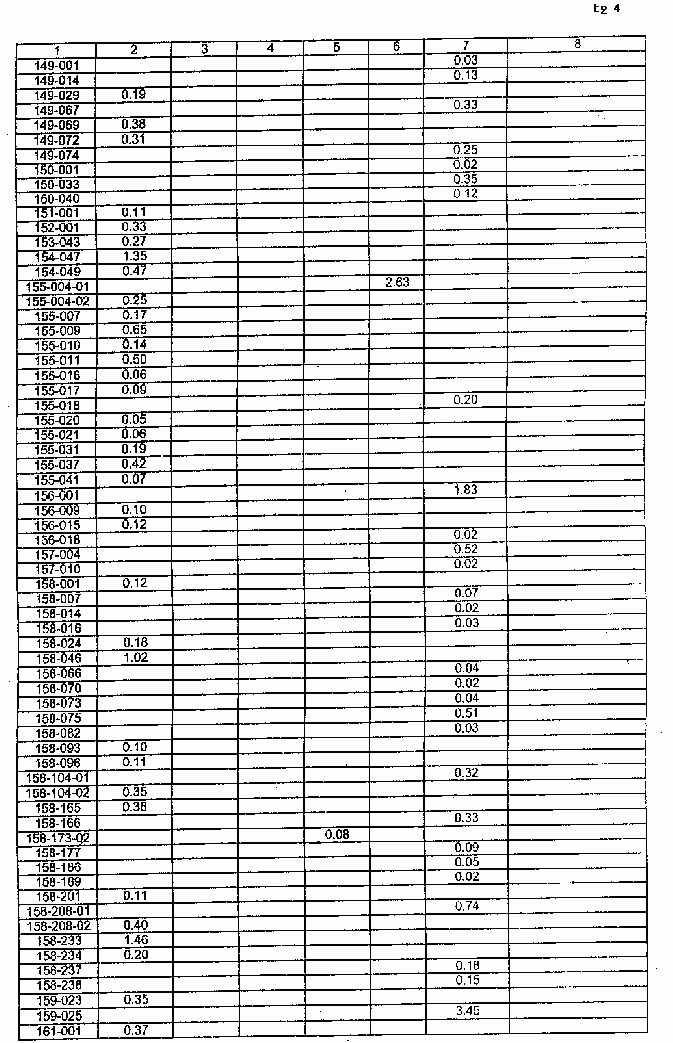 tg 4
1 2 3 4 5 6 7 8
149-001 0.03
149-014 0.13
149-029 0.19
149-067 0.33
149-069 0.38
149-072 0.31
149-074 0.25
150-001 0.02
150-033 0.35
160-040 0.12
151-001 0.11
152-001 0.33
153-043 0.27
154-047 1.35
154-049 0.47
155-004-01 2.63
155-004-02 0.25
155-007 0.17
155-009 0.65
155-010 0.14
155-011 0.50
155-016 0.06
155-017 0.09
155-018 0.20
155-020 0.05
155-021 0.06
155-031 0.19
155-037 0.42
155-041 0.07
156-001 1.83
156-009 0.10
156-015 0.12
156-018 0.02
157-004 0.52
157-010 0.02
158-001 0.12
158-007 0.07
158-014 0.02
158-016 0.03
158-024 0.18
158-046 1.02
158-066 0.04
158-070 0.02
158-073 0.04
158-075 0.51
158-082 0.03
158-093 0.10
158-096 0.11
158-104-01 0.32
158-104-02 0.35
158-165 0.38
158-166 0.33
158-173-02 0.08
158-177 0.09
158-186 0.05
158-189 0.02
158-201 0.11
158-208-01 0.74
158-208-02 0.40
158-233 1.46
158-234 0.20
158-237 0.18
158-238 0.15
159-023 0.35
159-025 3.45
161-001 0.37